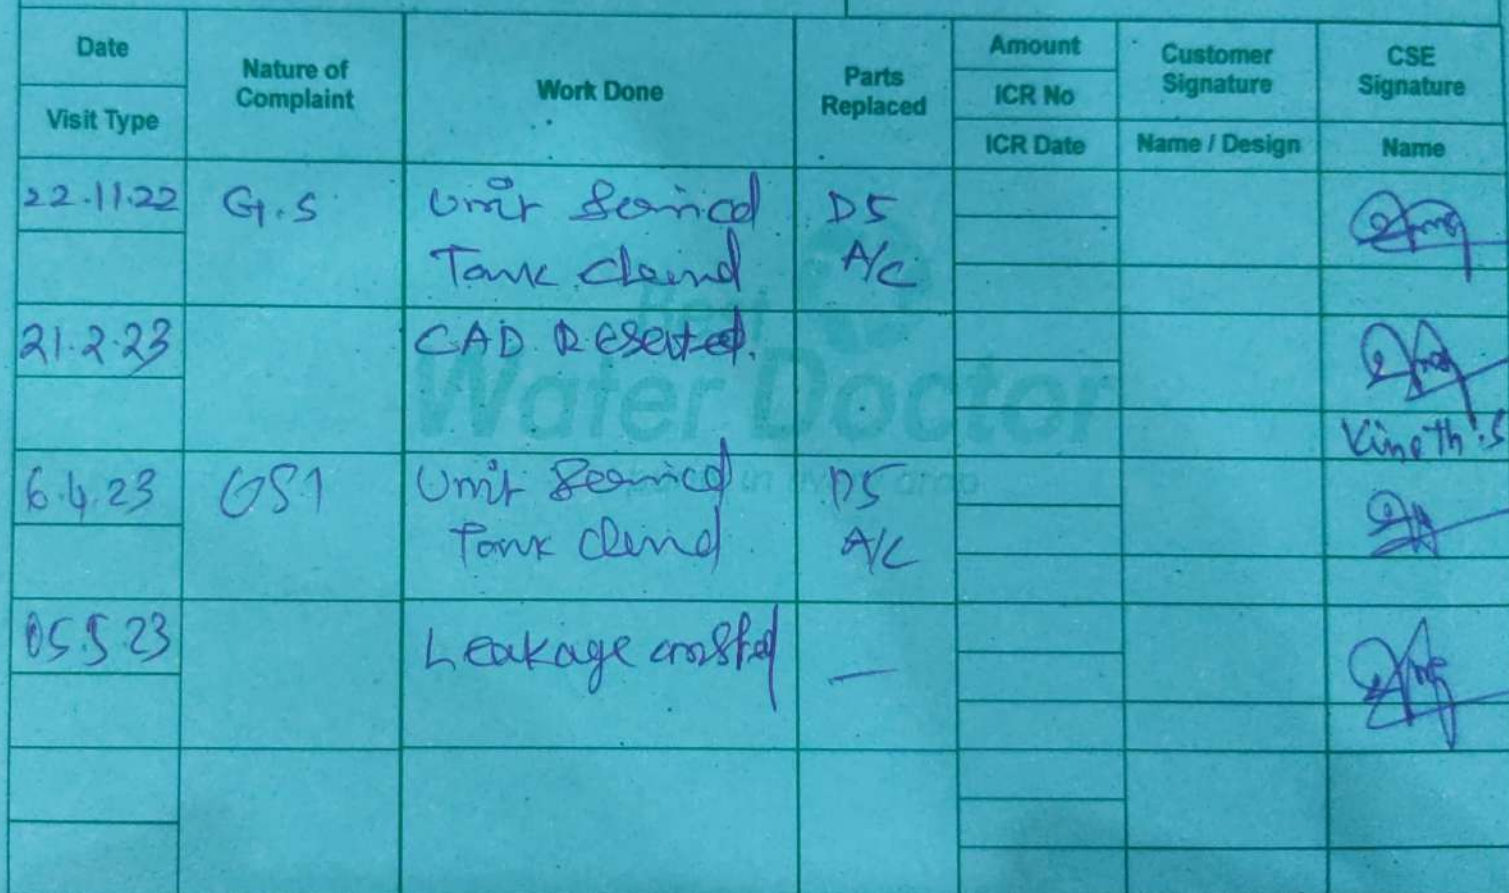 Date
Visit Type
Nature of
Complaint
Work Done
Parts
Replaced
Amount
ICR No
ICR Date
Customer
Signature
Name / Design
CSE
Signature
Name
22.11.22 G.S Unit Serviced D5
Tank Cleind A/C
21.2.23 CAD Reseted.
Water Doctor
Vineth.S
6.4.23 GS1 Unit Serviced D5
Tank Cleind A/C
05.5.23 Leakage —